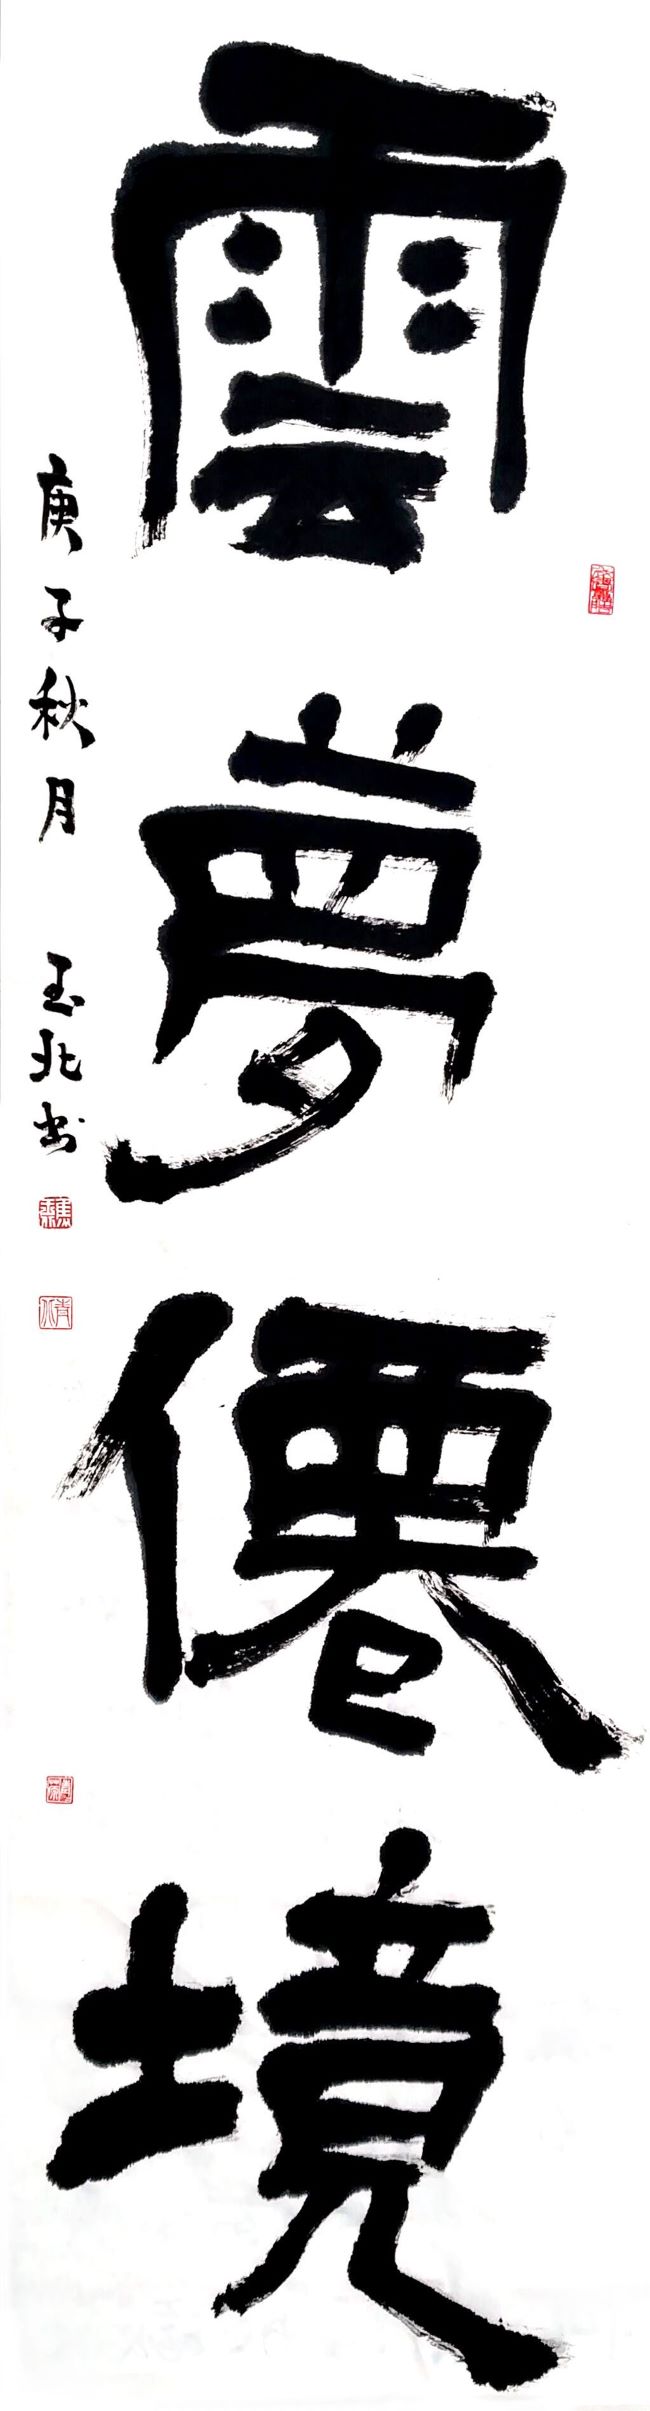 雲夢僊境
庚子秋月 玉北书